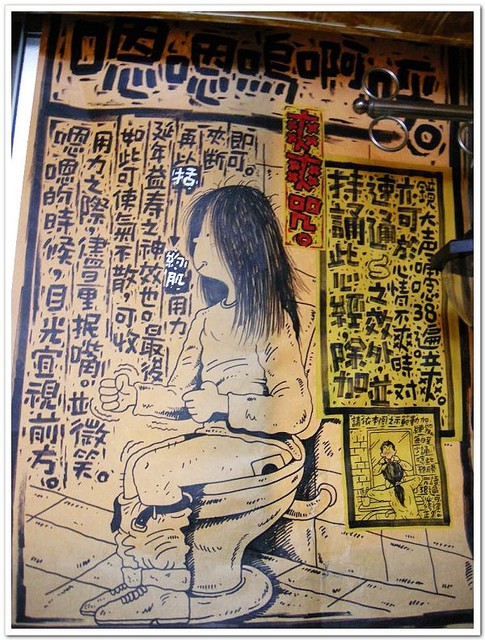 嗯嗯嗚啊呼。
嗯嗯的時候，目光宜視前方。
用力之際，儘量抿嘴。並微笑。
如此可使氣不散，可收
延年益壽之神效也。最後
再以括約肌用力
夾斷
即可。
爽爽咒。
持誦此心經除加
速通之效外並
就可於心情不爽時對
鏡大声38遍立爽。